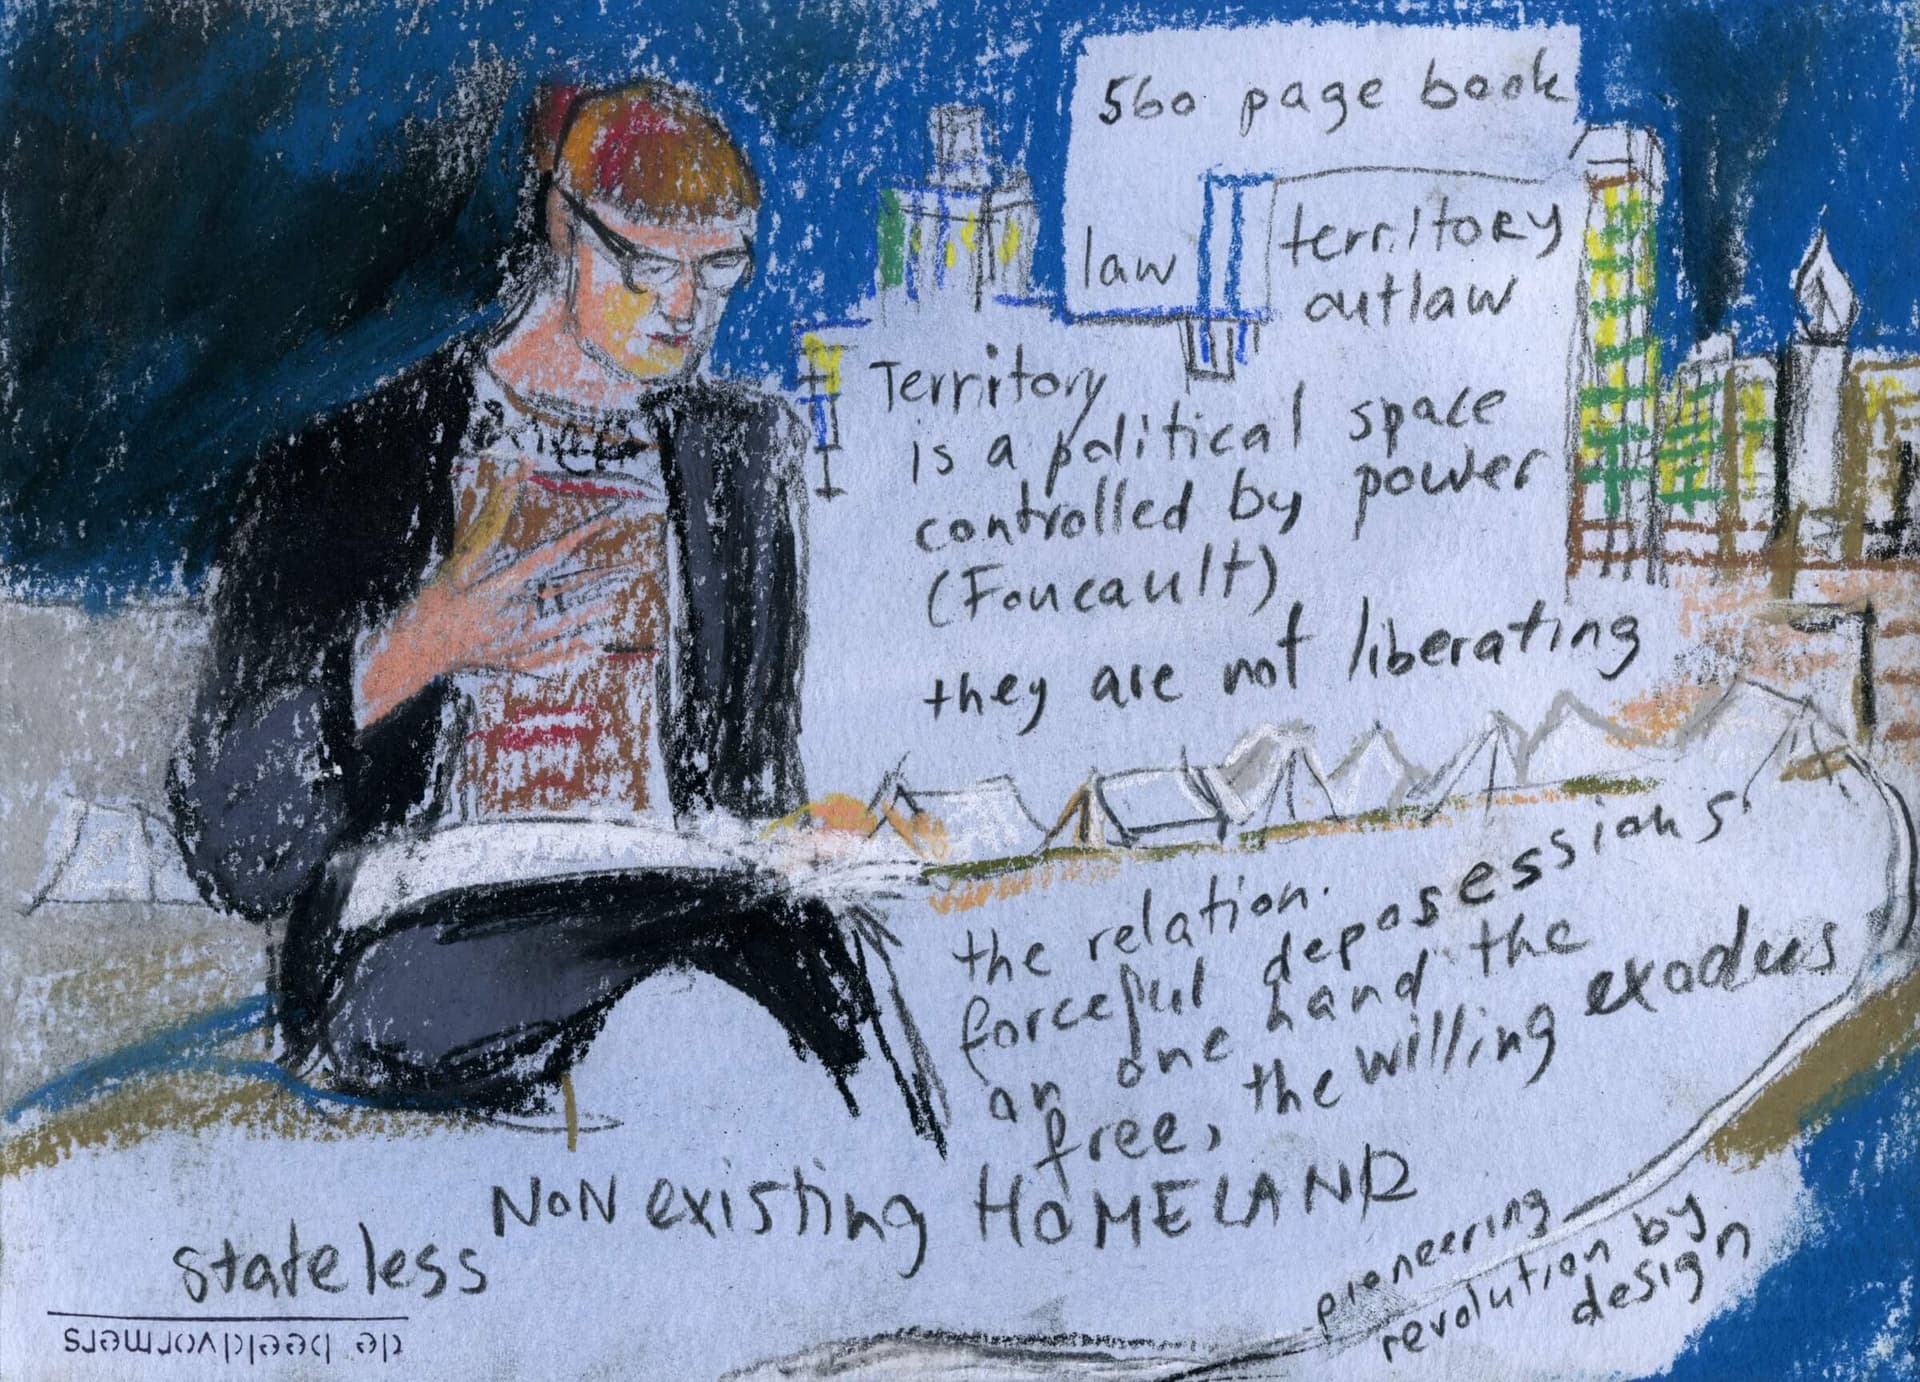 560 page book
law
territory
outlaw
Territory
is a political space
controlled by power
(Foucault)
they are not liberating
the relation.
forceful deposessions
an one hand the
free, the willing exodus
NON existing HOMELAND
stateless
pioneering
revolution by
design
de beeldvormers